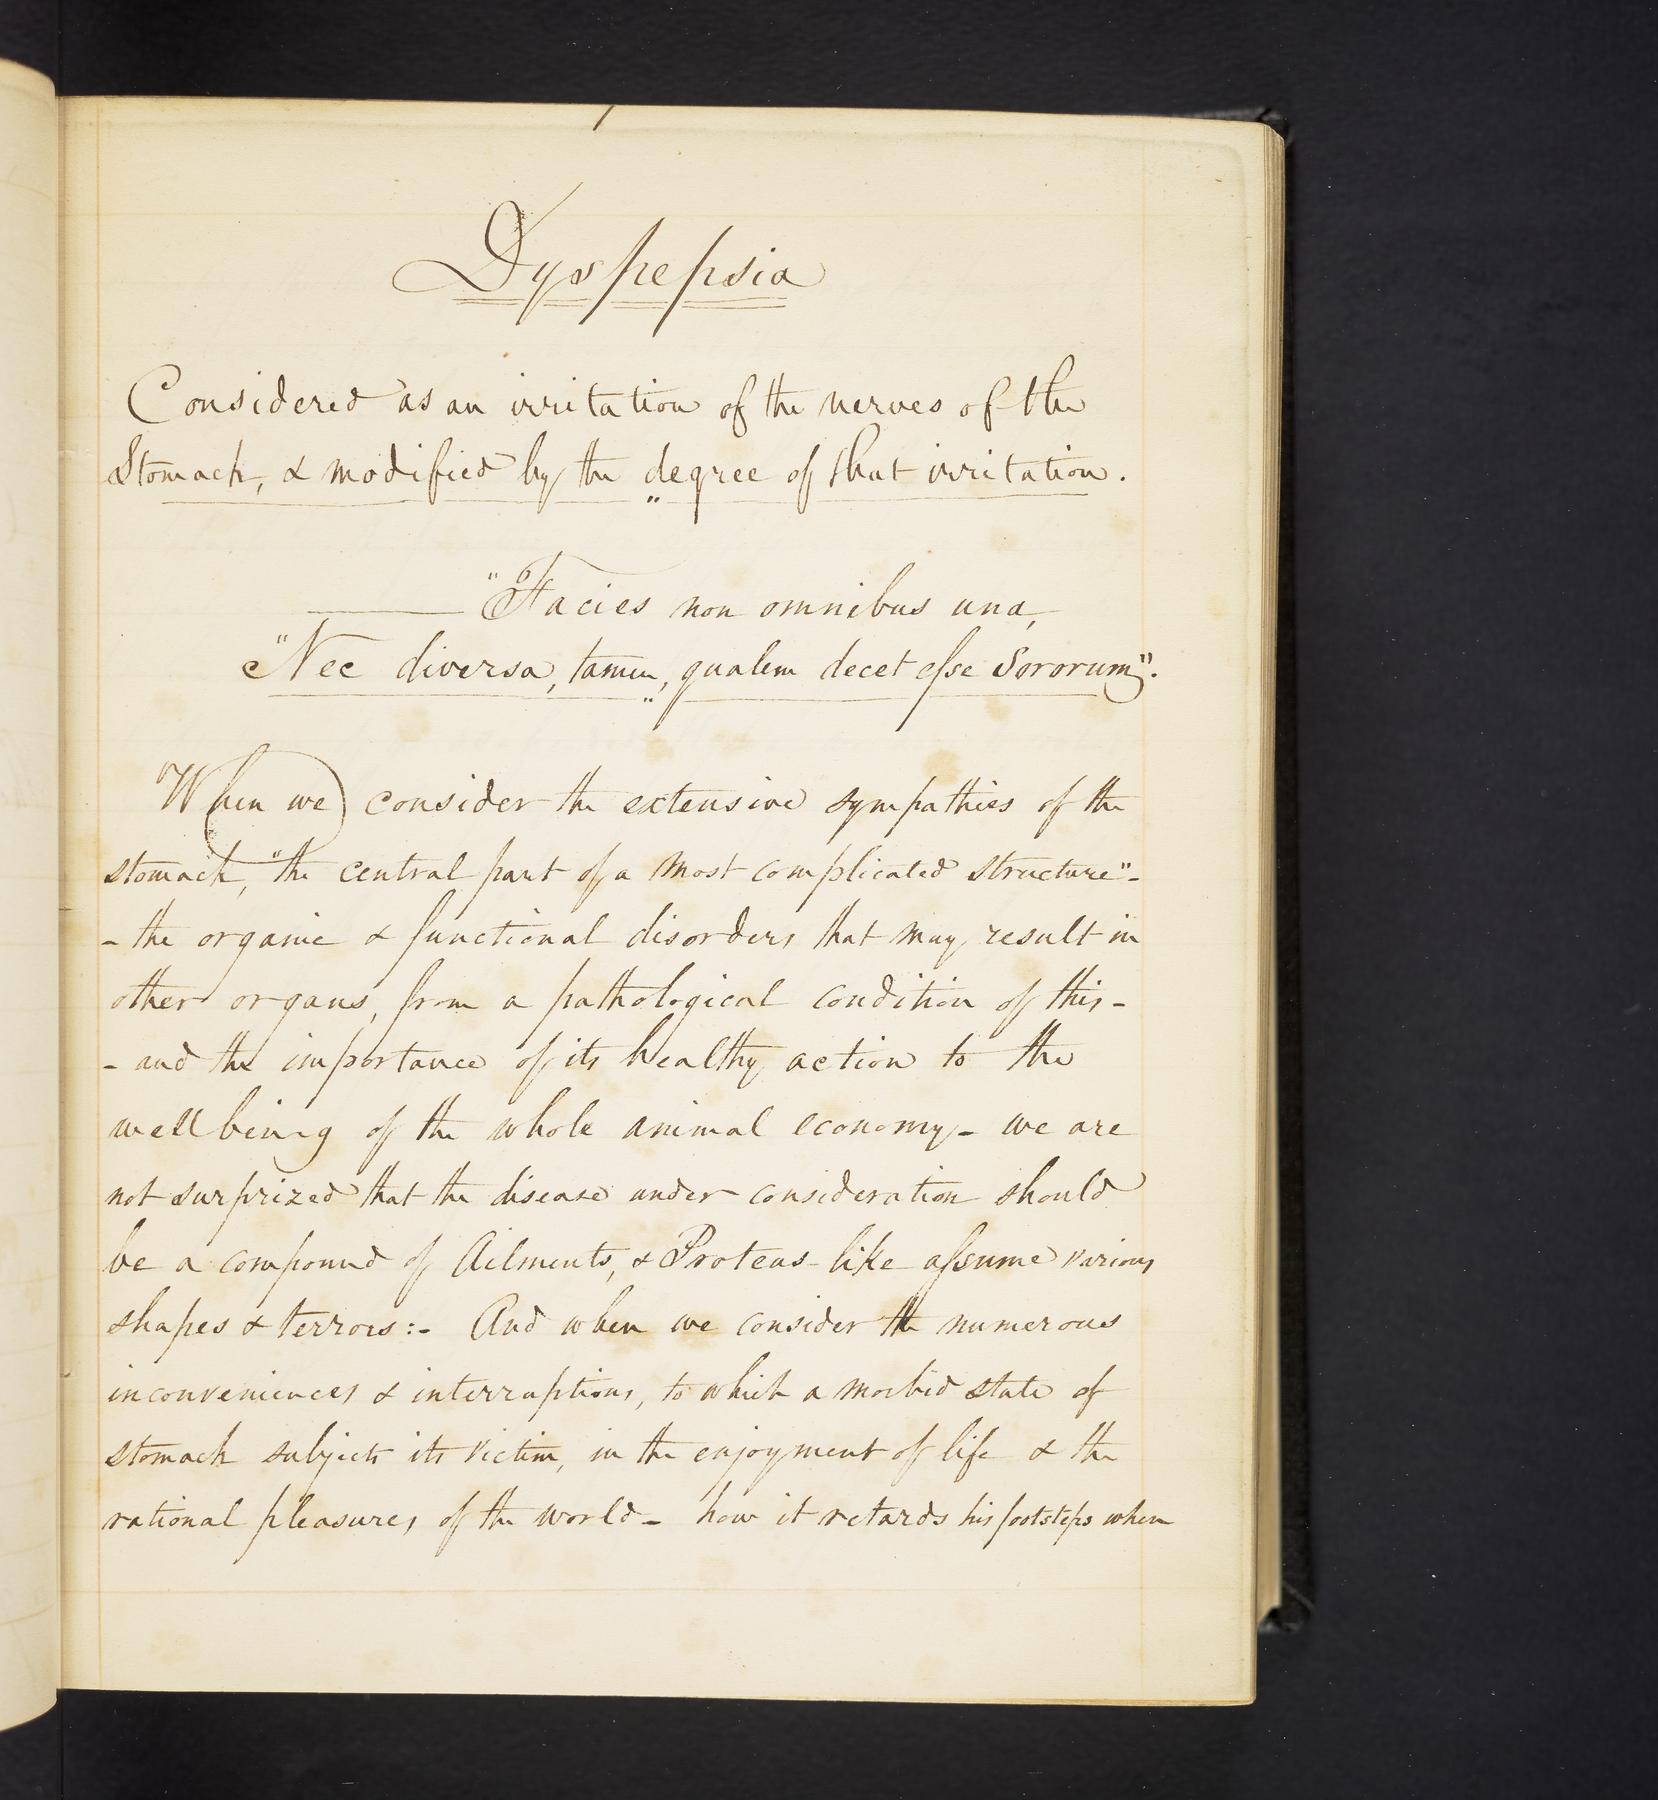 Dyspepsia
Considered as an irritation of the nerves of the
Stomach, & modified by the degree of that irritation.
"Facies non omnibus una,
"Nec diversa, tamen, qualem decet esse Sororum".
When we consider the extensive sympathies of the
stomach, "the central part of a most complicated structure" -
- the organic & functional disorders that may result in
other organs, from a pathological condition of this -
- and the importance of its healthy action to the
wellbeing of the whole animal economy - we are
not surprized that the disease under consideration should
be a compound of Ailments, & Proteus-like assume various
shapes & terrors :- And when we consider the numerous
inconveniences & interruptions, to which a morbid state of
stomach subjects its victim, in the enjoyment of life & the
rational pleasures of the world - how it retards his footsteps when